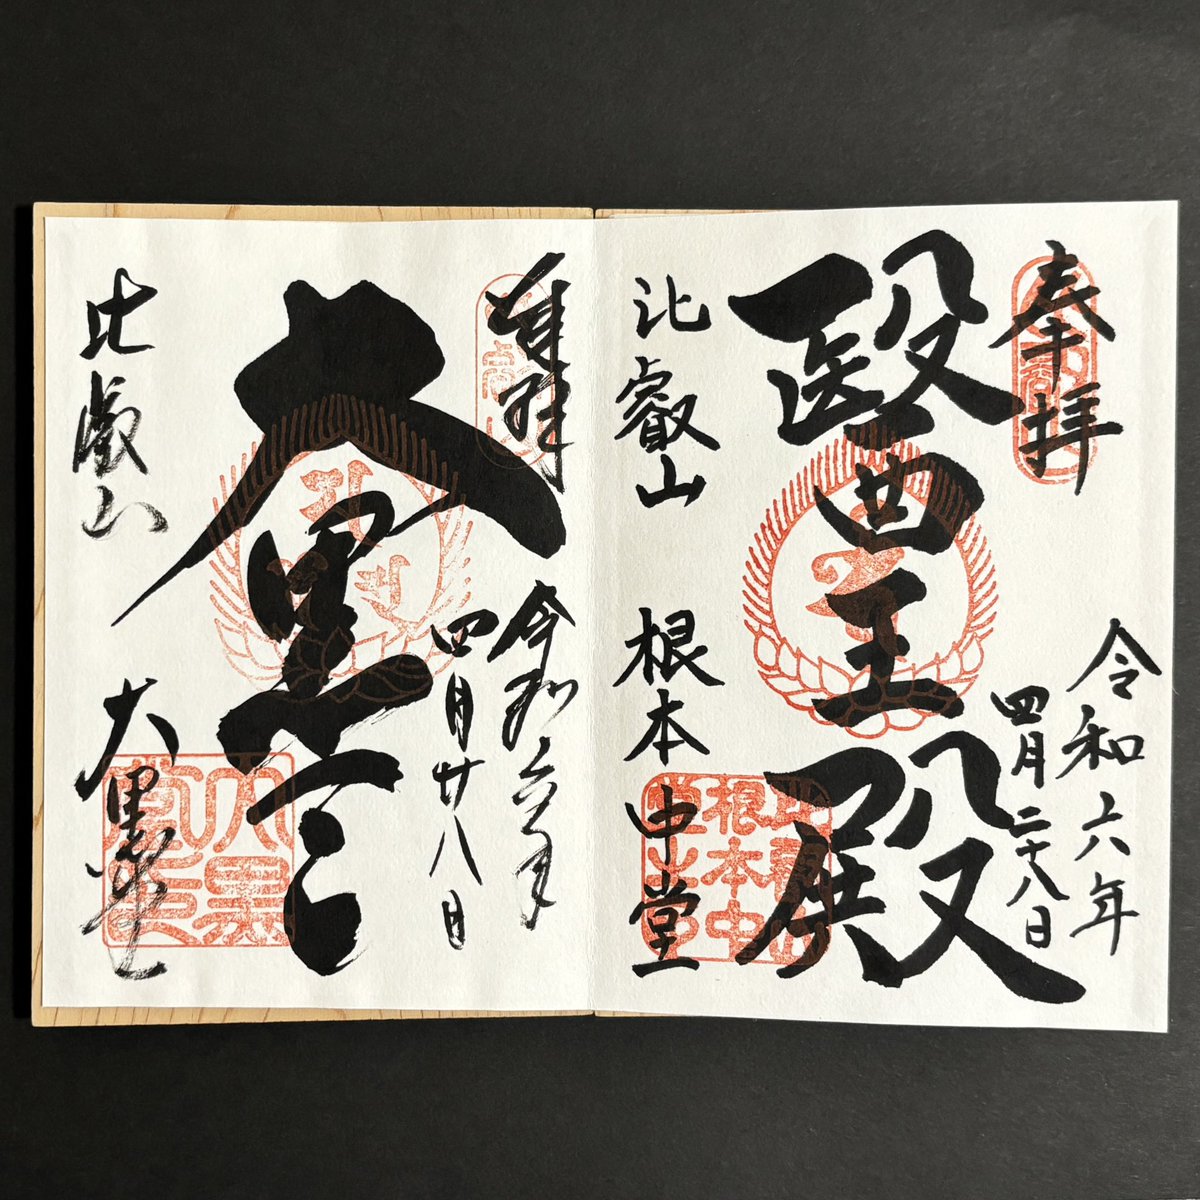 奉拝
令和六年
四月二十八日
醫王殿
比叡山
根本中堂
比叡山根本中堂之印
奉拝
令和六年
四月廿八日
大黒天
比叡山
大黒堂